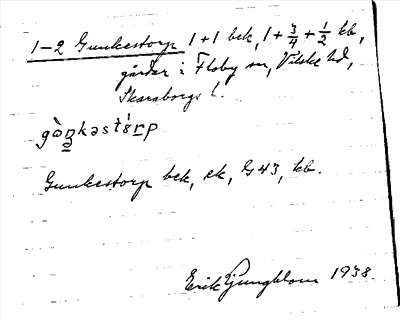 1-2 Gunkestorp 1+1 bek, 1+3/4+1/2 kb,
gårdar i Floby sn, Vilske hd,
Skaraborgs l.
gòŋkəstórp
Gunkestorp bek, ek, G43, kb.
Erik Ljungblom 1938.